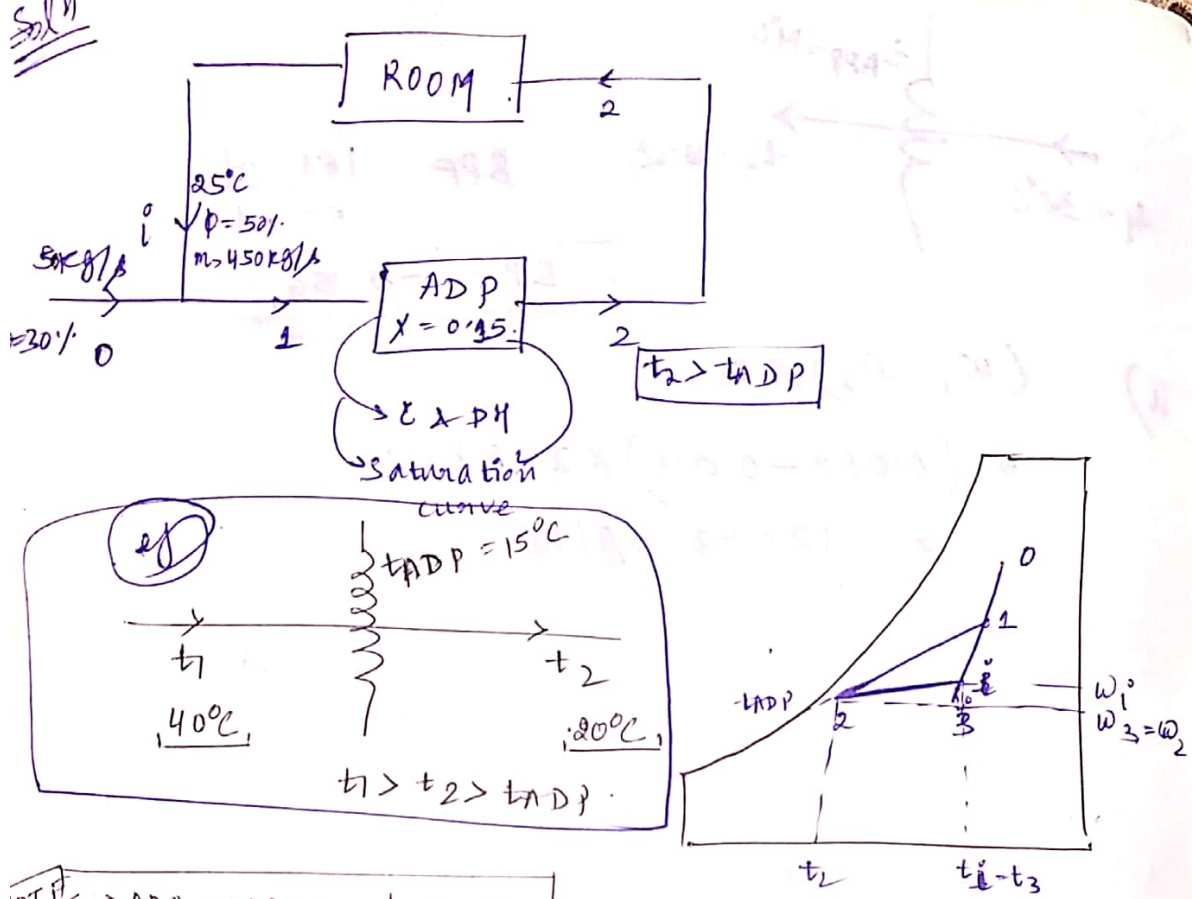 Solⁿ
ROOM
2
25°C
i
ϕ = 50%.
m = 450 kg/s
ADP
X = 0.15
=30% 0
1
2
t₂ > tADP
& DH
Saturation
curve
eg
tADP = 15°C
t₁
t₂
40°C
20°C
t₁ > t₂ > tADP.
0
1
i
tADP
2
3
ωi
ω₃ = ω₂
t₂
ti = t₃